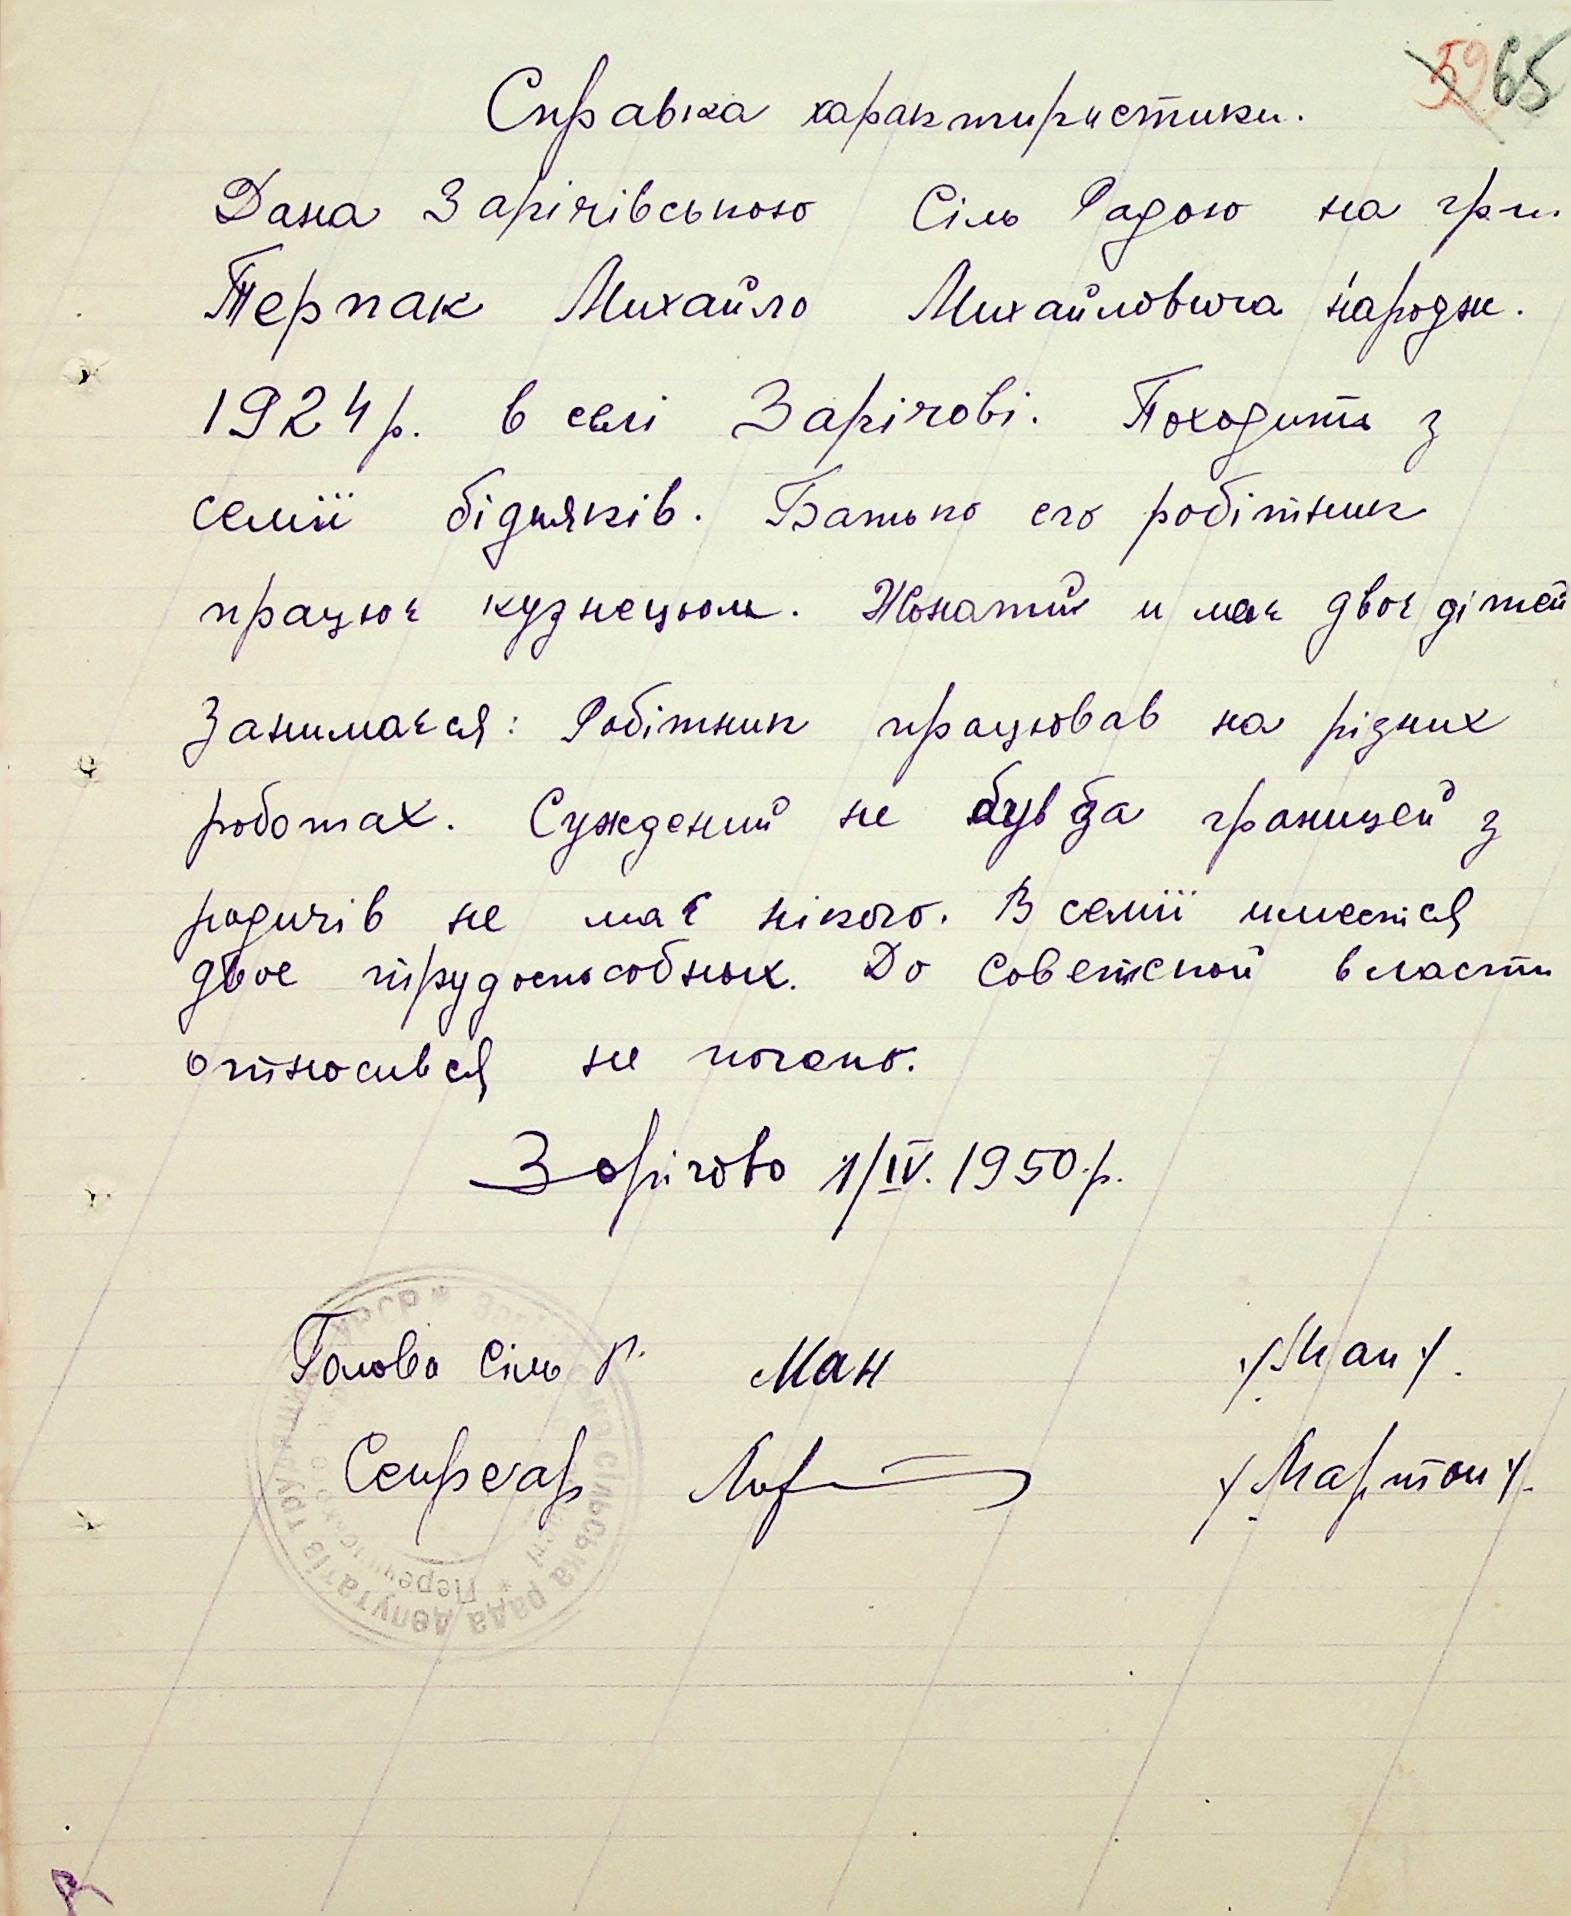 59 65
Справка характиристики.
Дана Зарічівською Сіль Радою на гр-н.
Терпак Михайло Михайловича народж.
1924 р. в селі Зарічові. Походить з
семії бідняків. Батько его робітник
працює кузнецьом. Жонатий и має двоє дітей
Занимаєся: Робітник працював на різних
роботах. Сужденний не був за границей з
родичів не має нікого. В семії имеется
двое трудоспособных. До советской власти
относився не погано.
Зарічово 1/IV. 1950.р.
Голова Сіль Р. Ман /Ман/.
Секретар /Мартон/.
сільська рада депутатів трудящих УРСР